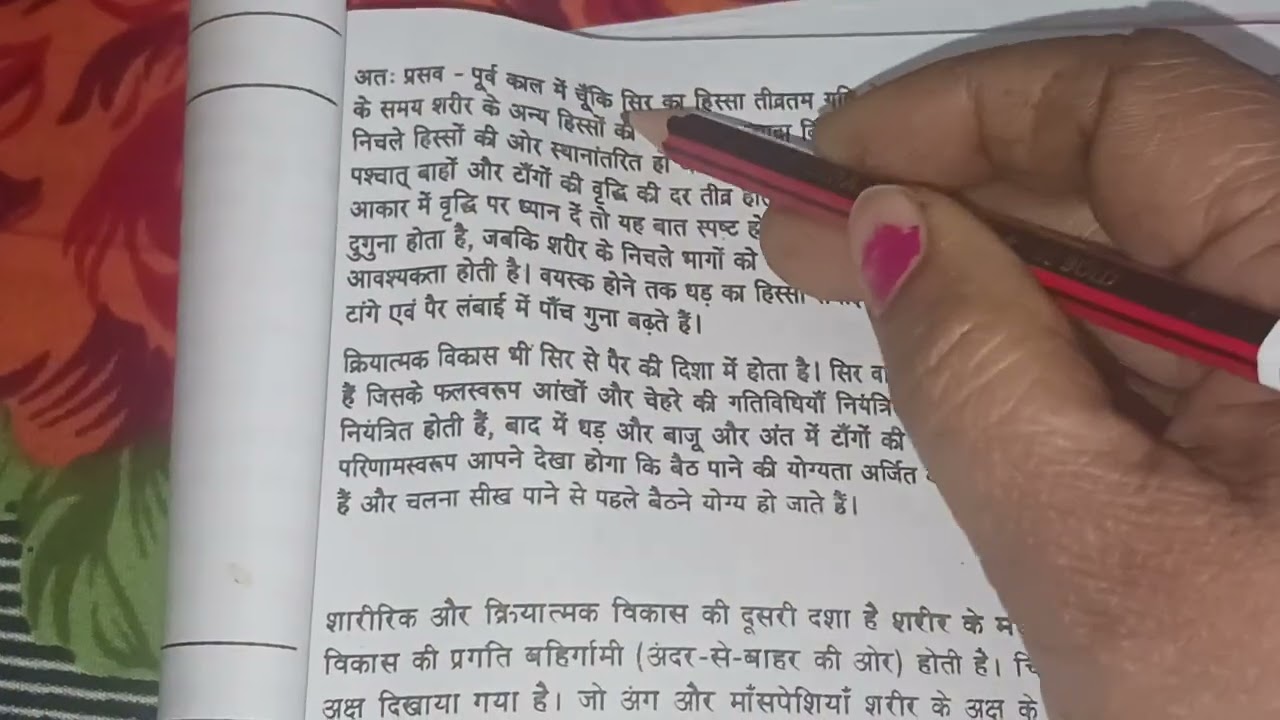 अतः प्रसव - पूर्व काल में चूँकि सिर का हिस्सा तीव्रतम
के समय शरीर के अन्य हिस्सों की
निचले हिस्सों की ओर स्थानांतरित हो
पश्चात् बाहों और टाँगों की वृद्धि की दर तीव्र
आकार में वृद्धि पर ध्यान दें तो यह बात स्पष्ट
दुगुना होता है, जबकि शरीर के निचले भागों को
आवश्यकता होती है। वयस्क होने तक धड़ का हिस्सा
टांगे एवं पैर लंबाई में पाँच गुना बढ़ते हैं।
क्रियात्मक विकास भी सिर से पैर की दिशा में होता है। सिर
है जिसके फलस्वरूप आंखों और चेहरे की गतिविधियाँ
नियंत्रित होती हैं, बाद में धड़ और बाजू और अंत में टाँगों की
परिणामस्वरूप आपने देखा होगा कि बैठ पाने की योग्यता अर्जित
हैं और चलना सीख पाने से पहले बैठने योग्य हो जाते हैं।
शारीरिक और क्रियात्मक विकास की दूसरी दशा है शरीर के
विकास की प्रगति बहिर्गामी (अंदर-से-बाहर की ओर) होती है।
अक्ष दिखाया गया है। जो अंग और माँसपेशियाँ शरीर के अक्ष के